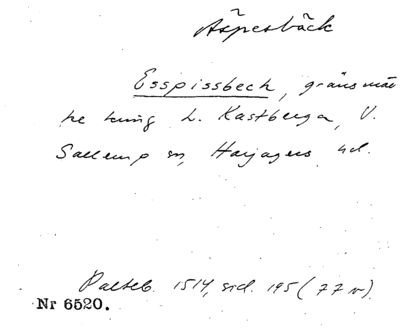 Äspesbäck
Esspissbeck, gränsmär
ke kring L. Kastberga, V.
Sallerup sn, Harjagers hd.
Palteb. 1514, sid. 195 (77 v).
Nr 6520.